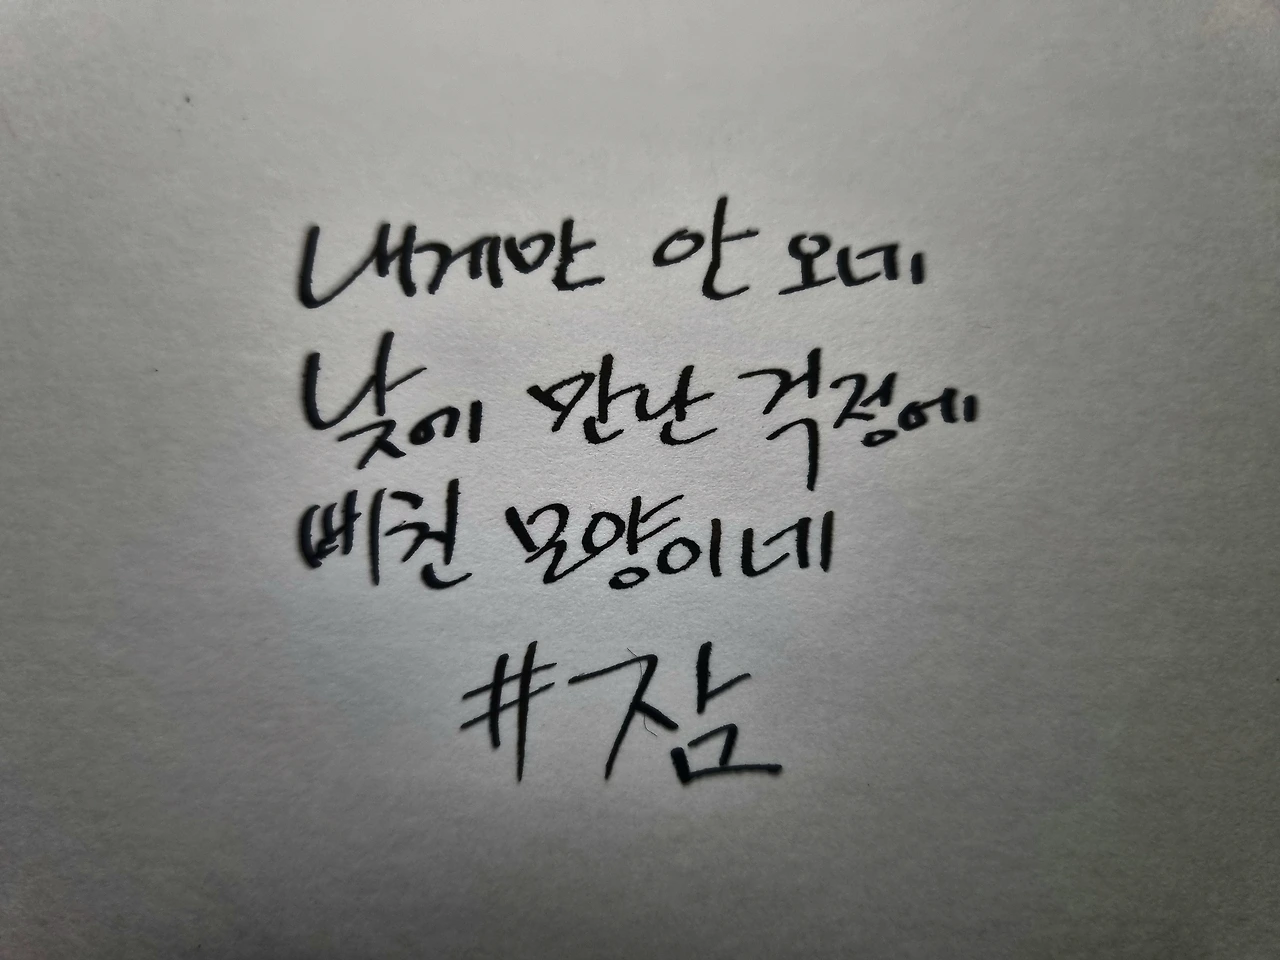 내게만 안 오네
낮에 만난 걱정에
삐친 모양이네
#잠